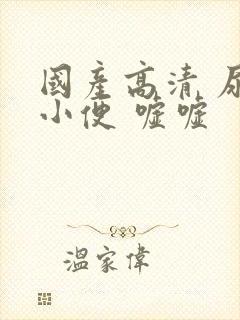 國產高清 尿
小便 嘘嘘
溫家偉